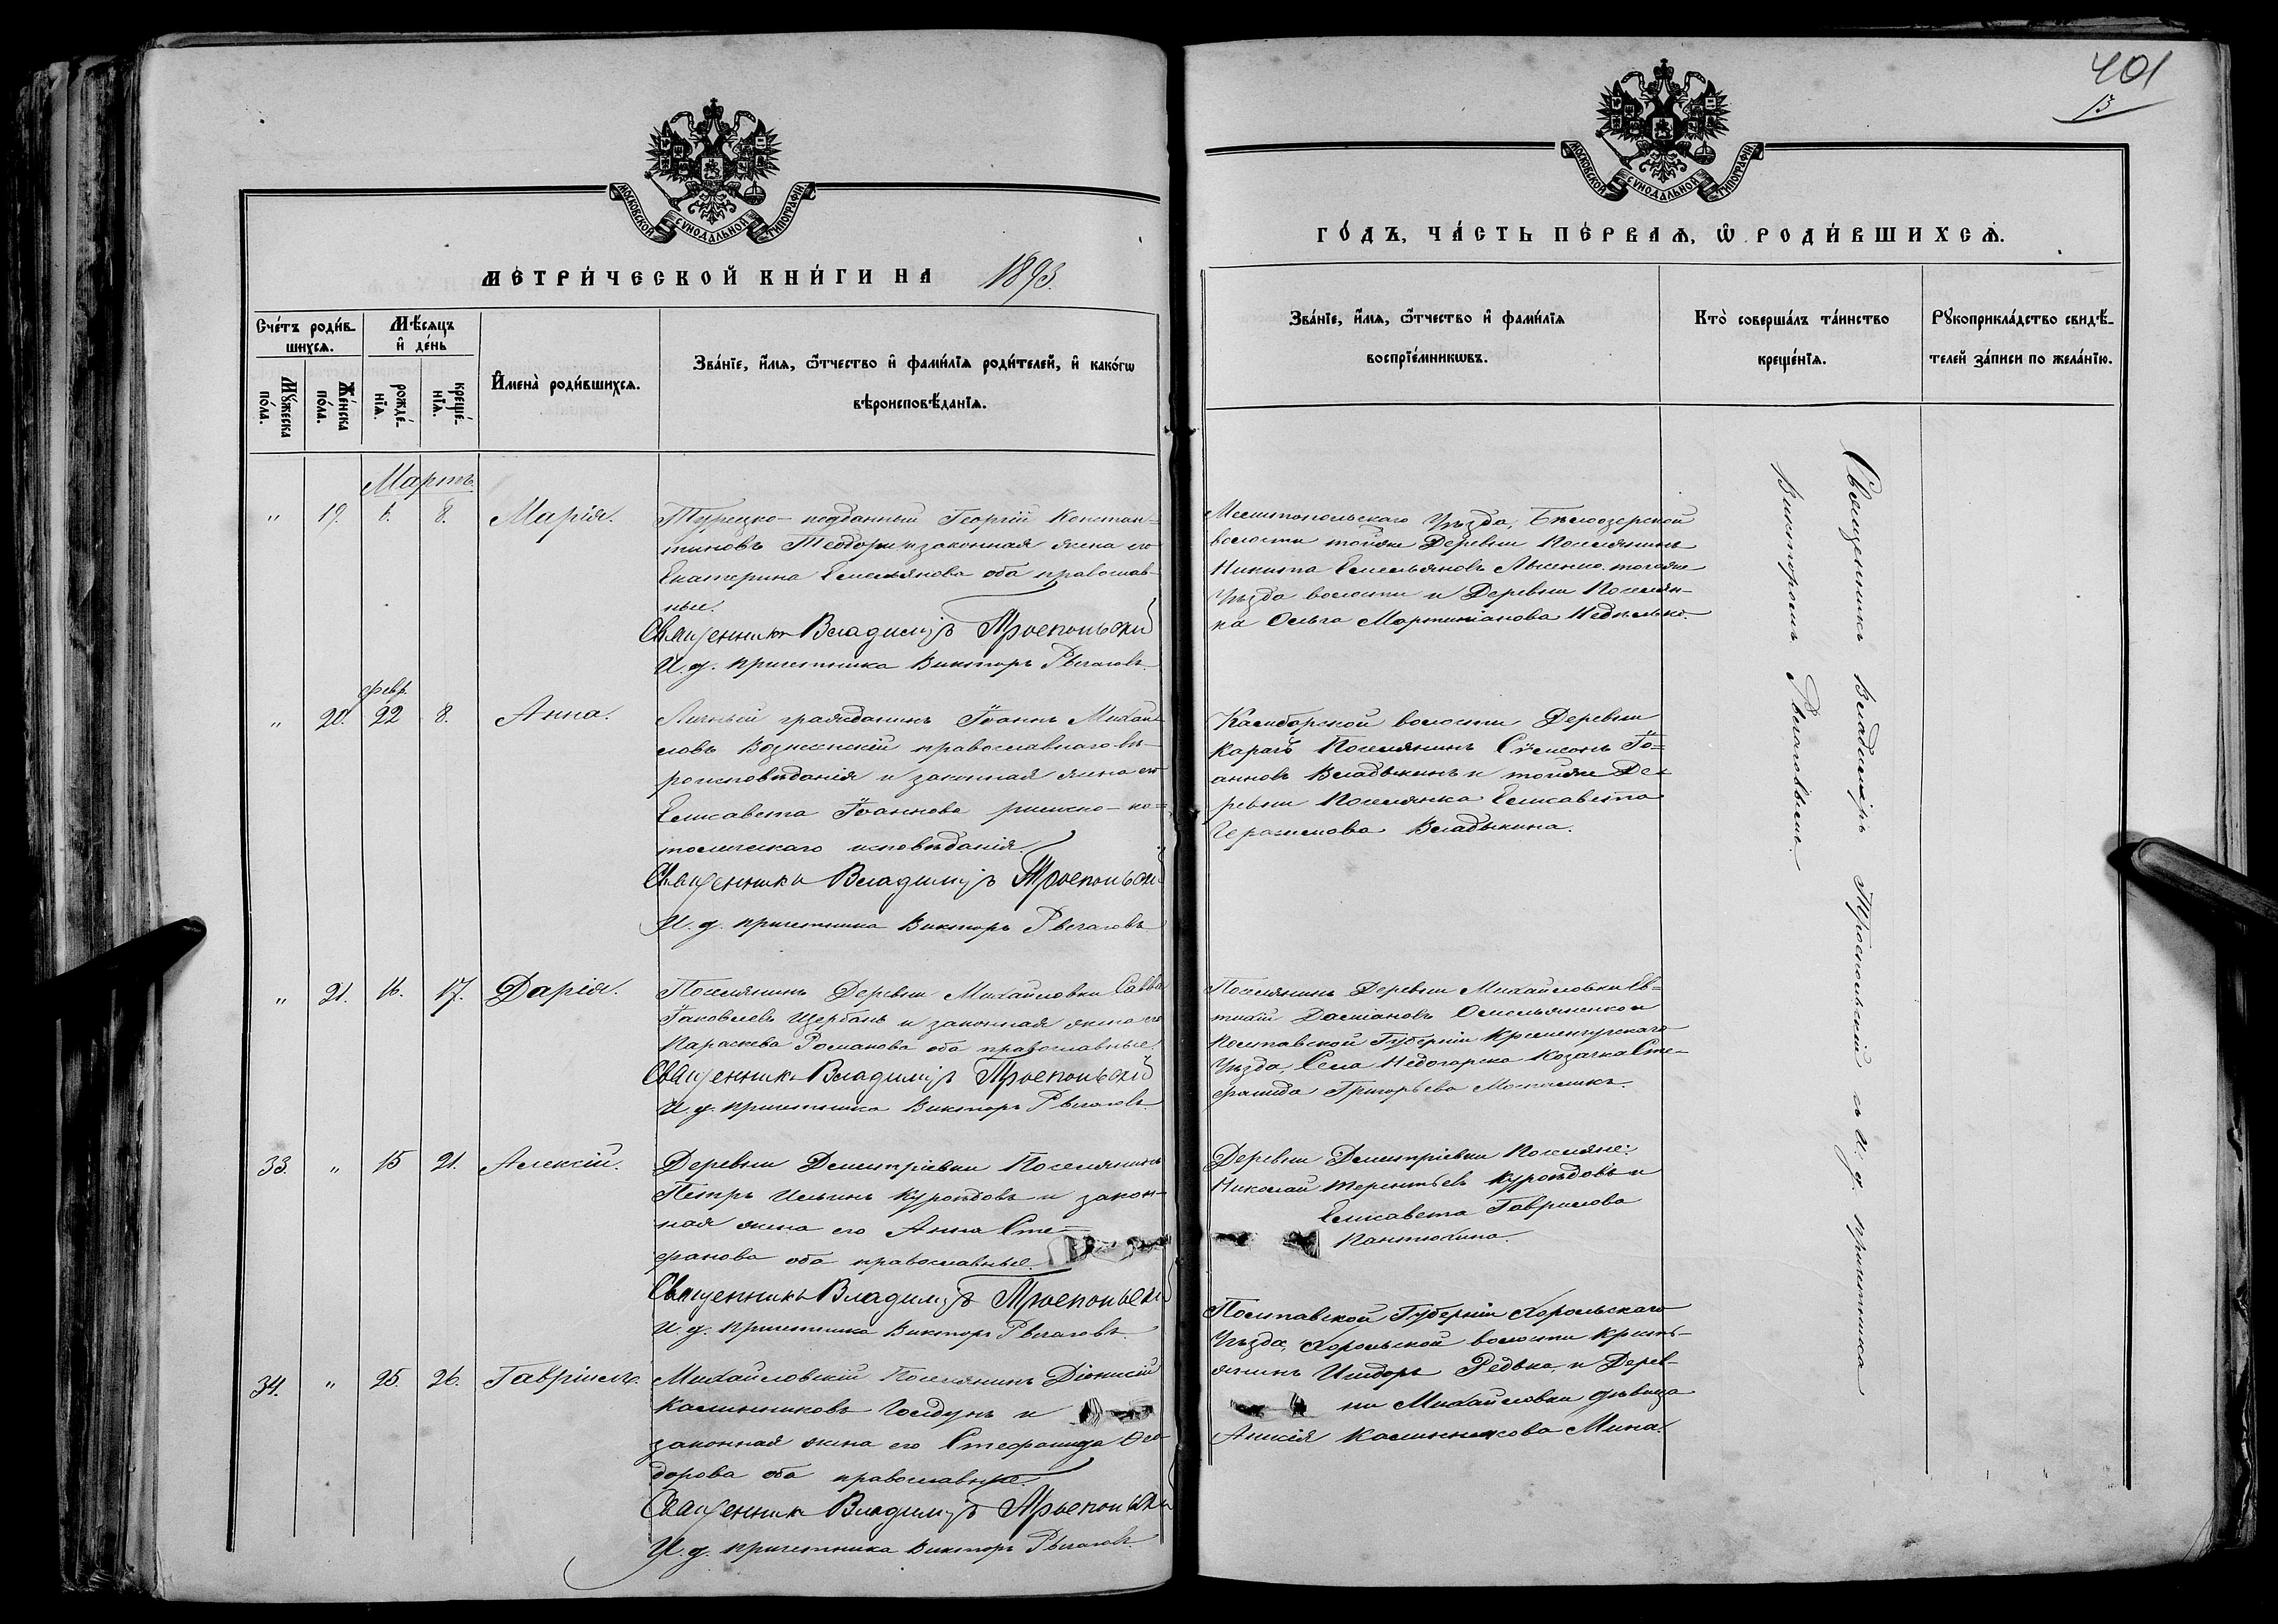 401
13
МОСКОВСКОЙ СѴНОДАЛЬНОЙ ТИПОГРАФІИ
МЕТРИ́ЧЕСКОЙ КНИ́ГИ НА 1893.
Сче́тъ роди́в-
шихсѧ.
Мѣ́сѧцъ
и҆ де́нь
Мꙋ́жеска
по́ла.
Же́нска
по́ла.
рожде́-
нїѧ.
креще́-
нїѧ.
И҆мена̀ роди́вшихсѧ.
Зва́нїе, и҆́мѧ, ѻ҆́тчество и҆ фами́лїѧ роди́телей, и҆ како́гѡ
вѣроисповѣ́данїѧ.
Мартъ.
" 19. 6. 8. Марія.
Турецко-подданный Георгій Констан=
тиновъ Теодори и законная жена его
Екатерина Емельянова оба православ-
ные.
Священникъ Владиміръ Троепольскій
И. д. причетника Викторъ
февр.
" 20. 22 8. Анна.
Личный гражданинъ Іоаннъ Михаи-
ловъ Вознесенскій православнаго вѣ-
роисповѣданія и законная жена его
Елисавета Іоаннова римско-ка=
толическаго исповѣданія.
Священникъ Владиміръ Троепольскій
И. д. причетника Викторъ
" 21. 16. 17. Дарія.
Поселянинъ Деревни Михайловки Савва
Іаковлевъ Щербань и законная жена его
Параскева Романова оба православные.
Священникъ Владиміръ Троепольскій
И. д. причетника Викторъ
33. " 15 21. Алексій.
Деревни Димитріевки Поселянинъ
Петръ Ильинъ Куроѣдовъ и закон-
ная жена его Анна Сте=
фанова оба православные.
Священникъ Владиміръ Троепольскій
И. д. причетника Викторъ
34. " 25. 26. Гавріилъ.
Михайловскій Поселянинъ Діонисій
Калинниковъ Голдунъ и
законная жена его Стефанида Ѳео-
дорова оба православные.
Священникъ Владиміръ Троепольскій
И. д. причетника Викторъ
МОСКОВСКОЙ СѴНОДАЛЬНОЙ ТИПОГРАФІИ
ГО́ДЪ, ЧА́СТЬ ПЕ́РВАѦ, Ѡ҆ РОДИ́ВШИХСѦ.
Зва́нїе, и҆́мѧ, ѻ҆́тчество и҆ фами́лїѧ
воспрїе́мникѡвъ.
Кто̀ соверша́лъ та́инство
креще́нїѧ.
Рꙋкоприкла́дство свидѣ́-
телей за́писи по жела́нїю.
Мелитопольскаго Уѣзда, Бѣлозерской
волости тойже Деревни Поселянинъ
Никита Емельяновъ Лысенко тогоже
Уѣзда волости и Деревни Поселян-
ка Ольга Мартиніанова Недѣлько.
волости Деревни
Карачъ Поселянинъ Сѵмеонъ Іо=
анновъ Владыкинъ и тойже Де-
ревни Поселянка Елисавета
Герасимова Владыкина.
Поселянинъ Деревни Михайловки Ев=
тихій Даміановъ Омельяненко и
Полтавской Губерніи Кременчугскаго
Уѣзда, Села Недогарка Козачка Сте-
фанида Григорьева
Деревни Димитріевки Поселяне:
Николай Терентьевъ Куроѣдовъ и
Елисавета Гаврилова
Пантюхина.
Полтавской Губерніи Хорольскаго
Уѣзда, Хорольской волости Кресть-
янинъ Исидоръ Редька, и Дерев-
ни Михайловки дѣвица
Анисія Калинникова Мина.
Священникъ Владиміръ Троепольскій съ И. д. причетника
Викторомъ